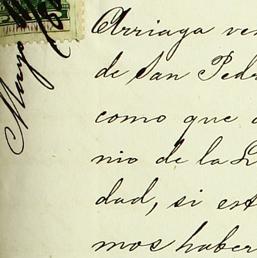 Mayo
Arriaga ve
de San Ped
como que
nio de la L
dad, si est
mos haber